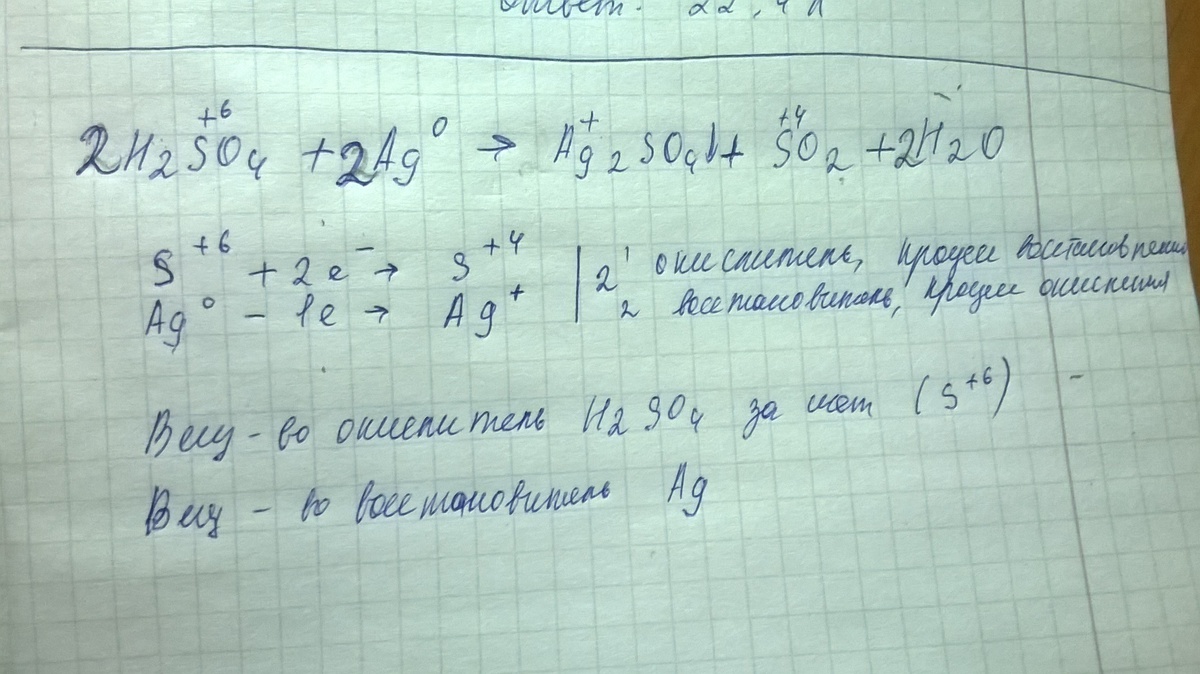 Ответ. 22,4 л
2H₂S⁺⁶O₄ + 2Ag⁰ → Ag⁺₂SO₄↓ + S⁺⁴O₂ + 2H₂O
S⁺⁶ + 2e⁻ → S⁺⁴ | 2 1 окислитель, процесс восстановления
Ag⁰ - 1e → Ag⁺ | 2 восстановитель, процесс окисления
Вещ-во окислитель H₂SO₄ за счет (S⁺⁶)
Вещ-во восстановитель Ag